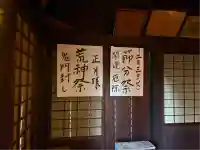 二月三日(火)
節分祭
開運厄除
正月様
荒神祭
鬼門封じ